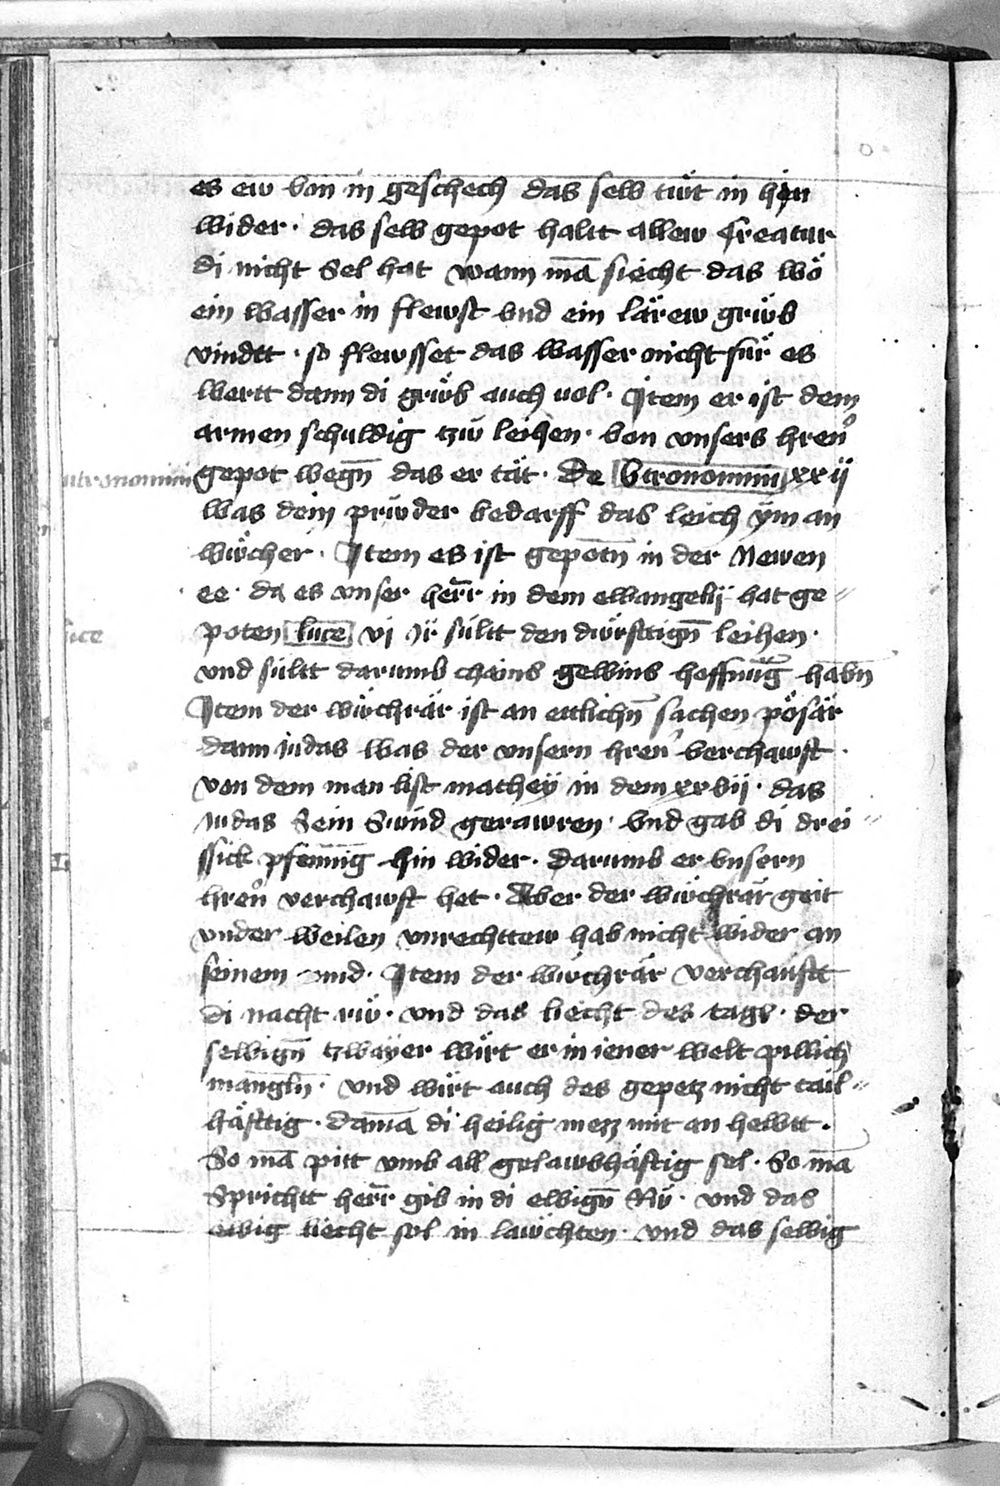 es ew von in geschech das selb tuͤt in hin
wider · das selb gepot haltt allew Creatur
di nicht Sel hat wann mā siecht das wo
ein wasser in flewst vnd ein lärew gruͤb
vindtt · so flewsset das wasser nicht für es
wertt dann di gruͤb auch vol · Item er ist dem
armen schuldig tzw leihen · von vnsers hren̄
gepot wegn̄ das er tät · De vtronomiū xxij
was dein pruder bedarff das leich ym an
wuͤcher · Item es ist gepotn̄ in der Newen
ee · da es vnser herr̄ in dem ewangelij hat ge⸗
poten luce vj Ir sültt den dürfttign̄ leihen ·
vnd sültt darumb chains gewins hoffnūg habn̄
Item der wuͤchrär ist an ettlichn̄ sachen pösär
dann judas was der vnsern hren̄ verchawft ·
von dem man list mathey in dem xxvij · das
Judas Sein Sund gerawren · vnd gab di drei⸗
ssick pfennīg hin wider · Darumb er vnsern
hren̄ verchawft het · Aber der wuͤchrär geit
vnder weilen vnrechttew hab nicht wider an
seinem end · Item der wuͤchrär verchauftt
di nacht ruͤ · vnd das liecht des tags · der
selbign̄ tzwayer wirt er in iener welt pillich
mangln̄ · vnd wirt auch des gepetz nicht tail⸗
häfttig · Damā di heilig mezz mit an hebtt ·
So mā pitt vmb all gelawbhäftig sel · So mā
Sprichtt herr̄ gib in di ewign̄ Ruͤ · vnd das
ewig liecht sol in lawchten · vnd das selbig